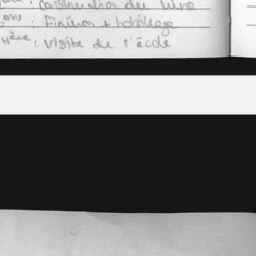 construction du livre
: Finition + habillage
: visite de l'école